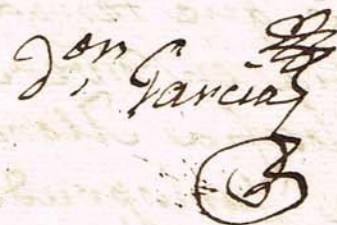 don Garcia